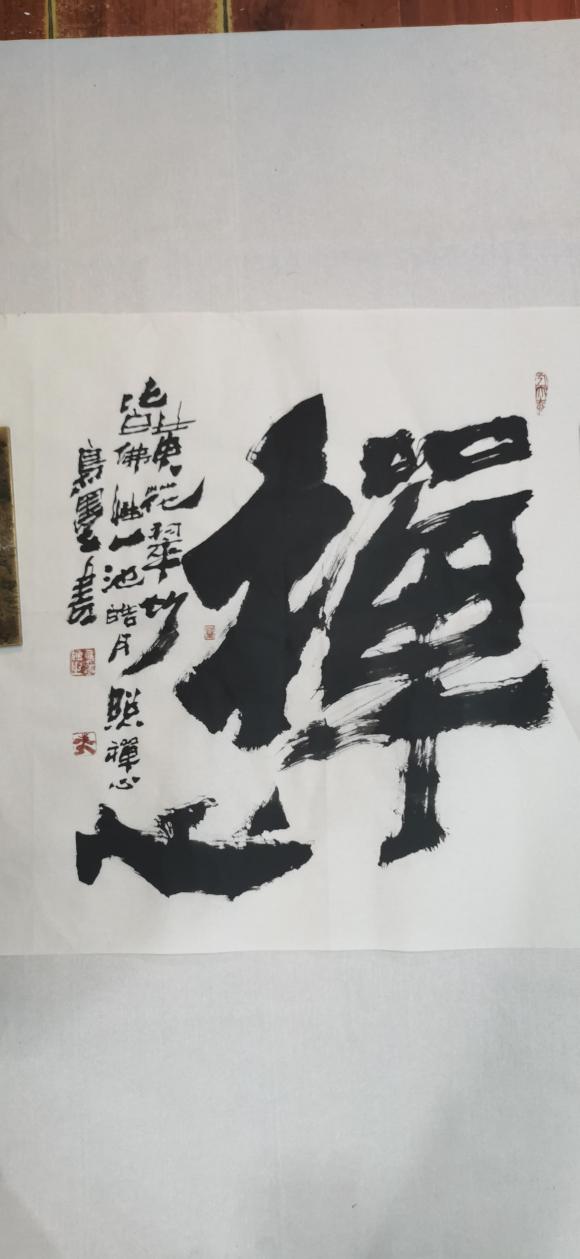 禪心
黄花翠竹
皆佛性一池皓月照禪心
書